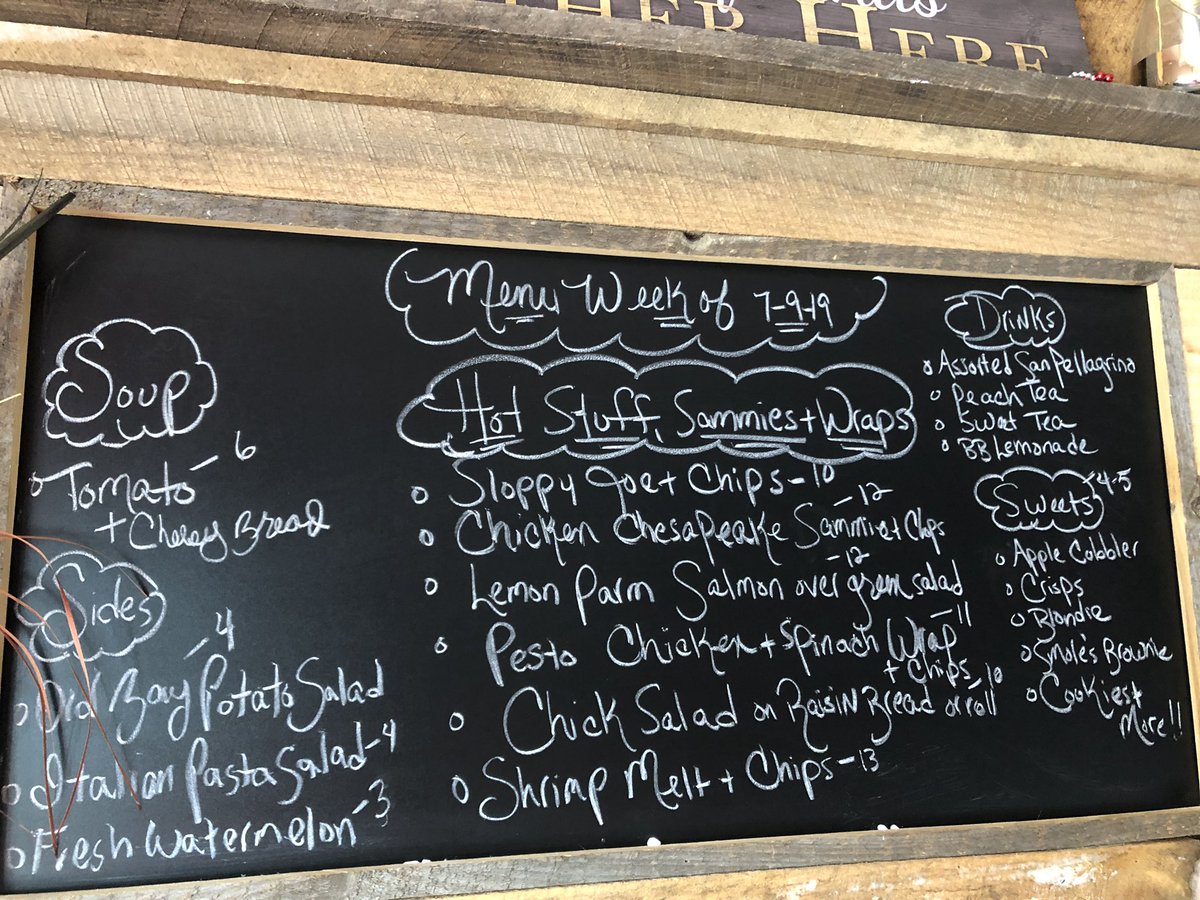 HER HERE
Menu Week of 7-9-19
Soup
Tomato - 6
+ Cheesy Bread
Sides
Old Bay Potato Salad - 4
Italian Pasta Salad - 4
Fresh Watermelon - 3
Hot Stuff, Sammies + Wraps
Sloppy Joe + Chips - 10
Chicken Chesapeake Sammie + Chips - 12
Lemon Parm Salmon over green salad - 12
Pesto Chicken + Spinach Wrap - 11
+ Chips
Chick Salad on Raisin Bread or roll - 10
Shrimp Melt + Chips - 13
Drinks
Assorted San Pellagrino
Peach Tea
Sweet Tea
BB Lemonade
Sweets - 4-5
Apple Cobbler
Crisps
Blondie
Smole's Brownie
Cookies +
More!!